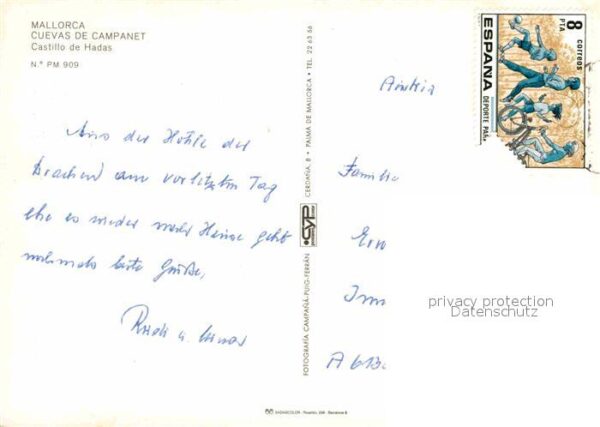 MALLORCA
CUEVAS DE CAMPANET
Castillo de Hadas
N.º PM 909
Aus der Höhle der
Drachen am vorletzten Tag
ehe es wieder nach Hause geht
nochmals beste Grüße,
Rudi u.
FOTOGRAFÍA CAMPAÑÁ-PUIG-FERRÁN
CERDAÑA, 8 • PALMA DE MALLORCA • TEL. 22 63 56
Austria
Familie
A 613
8 PTA
correos
ESPAÑA
DEPORTE PARA
privacy protection
Datenschutz